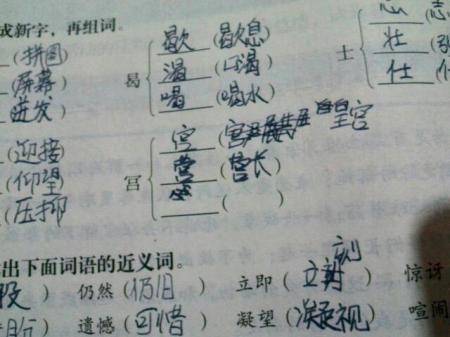 成新字，再组词。
(拼图) 歇 (歇息) 志
(屏幕) 曷 渴 (口渴) 士 壮
(迸发) 喝 (喝水) 仕
(迎接) 宫 (宫 皇宫
(仰望) 营 (营长)
(压抑) ( )
出下面词语的近义词。
仍然 (仍旧) 立即 (立刻 惊讶
遗憾 (可惜) 凝望 (凝视) 喧闹